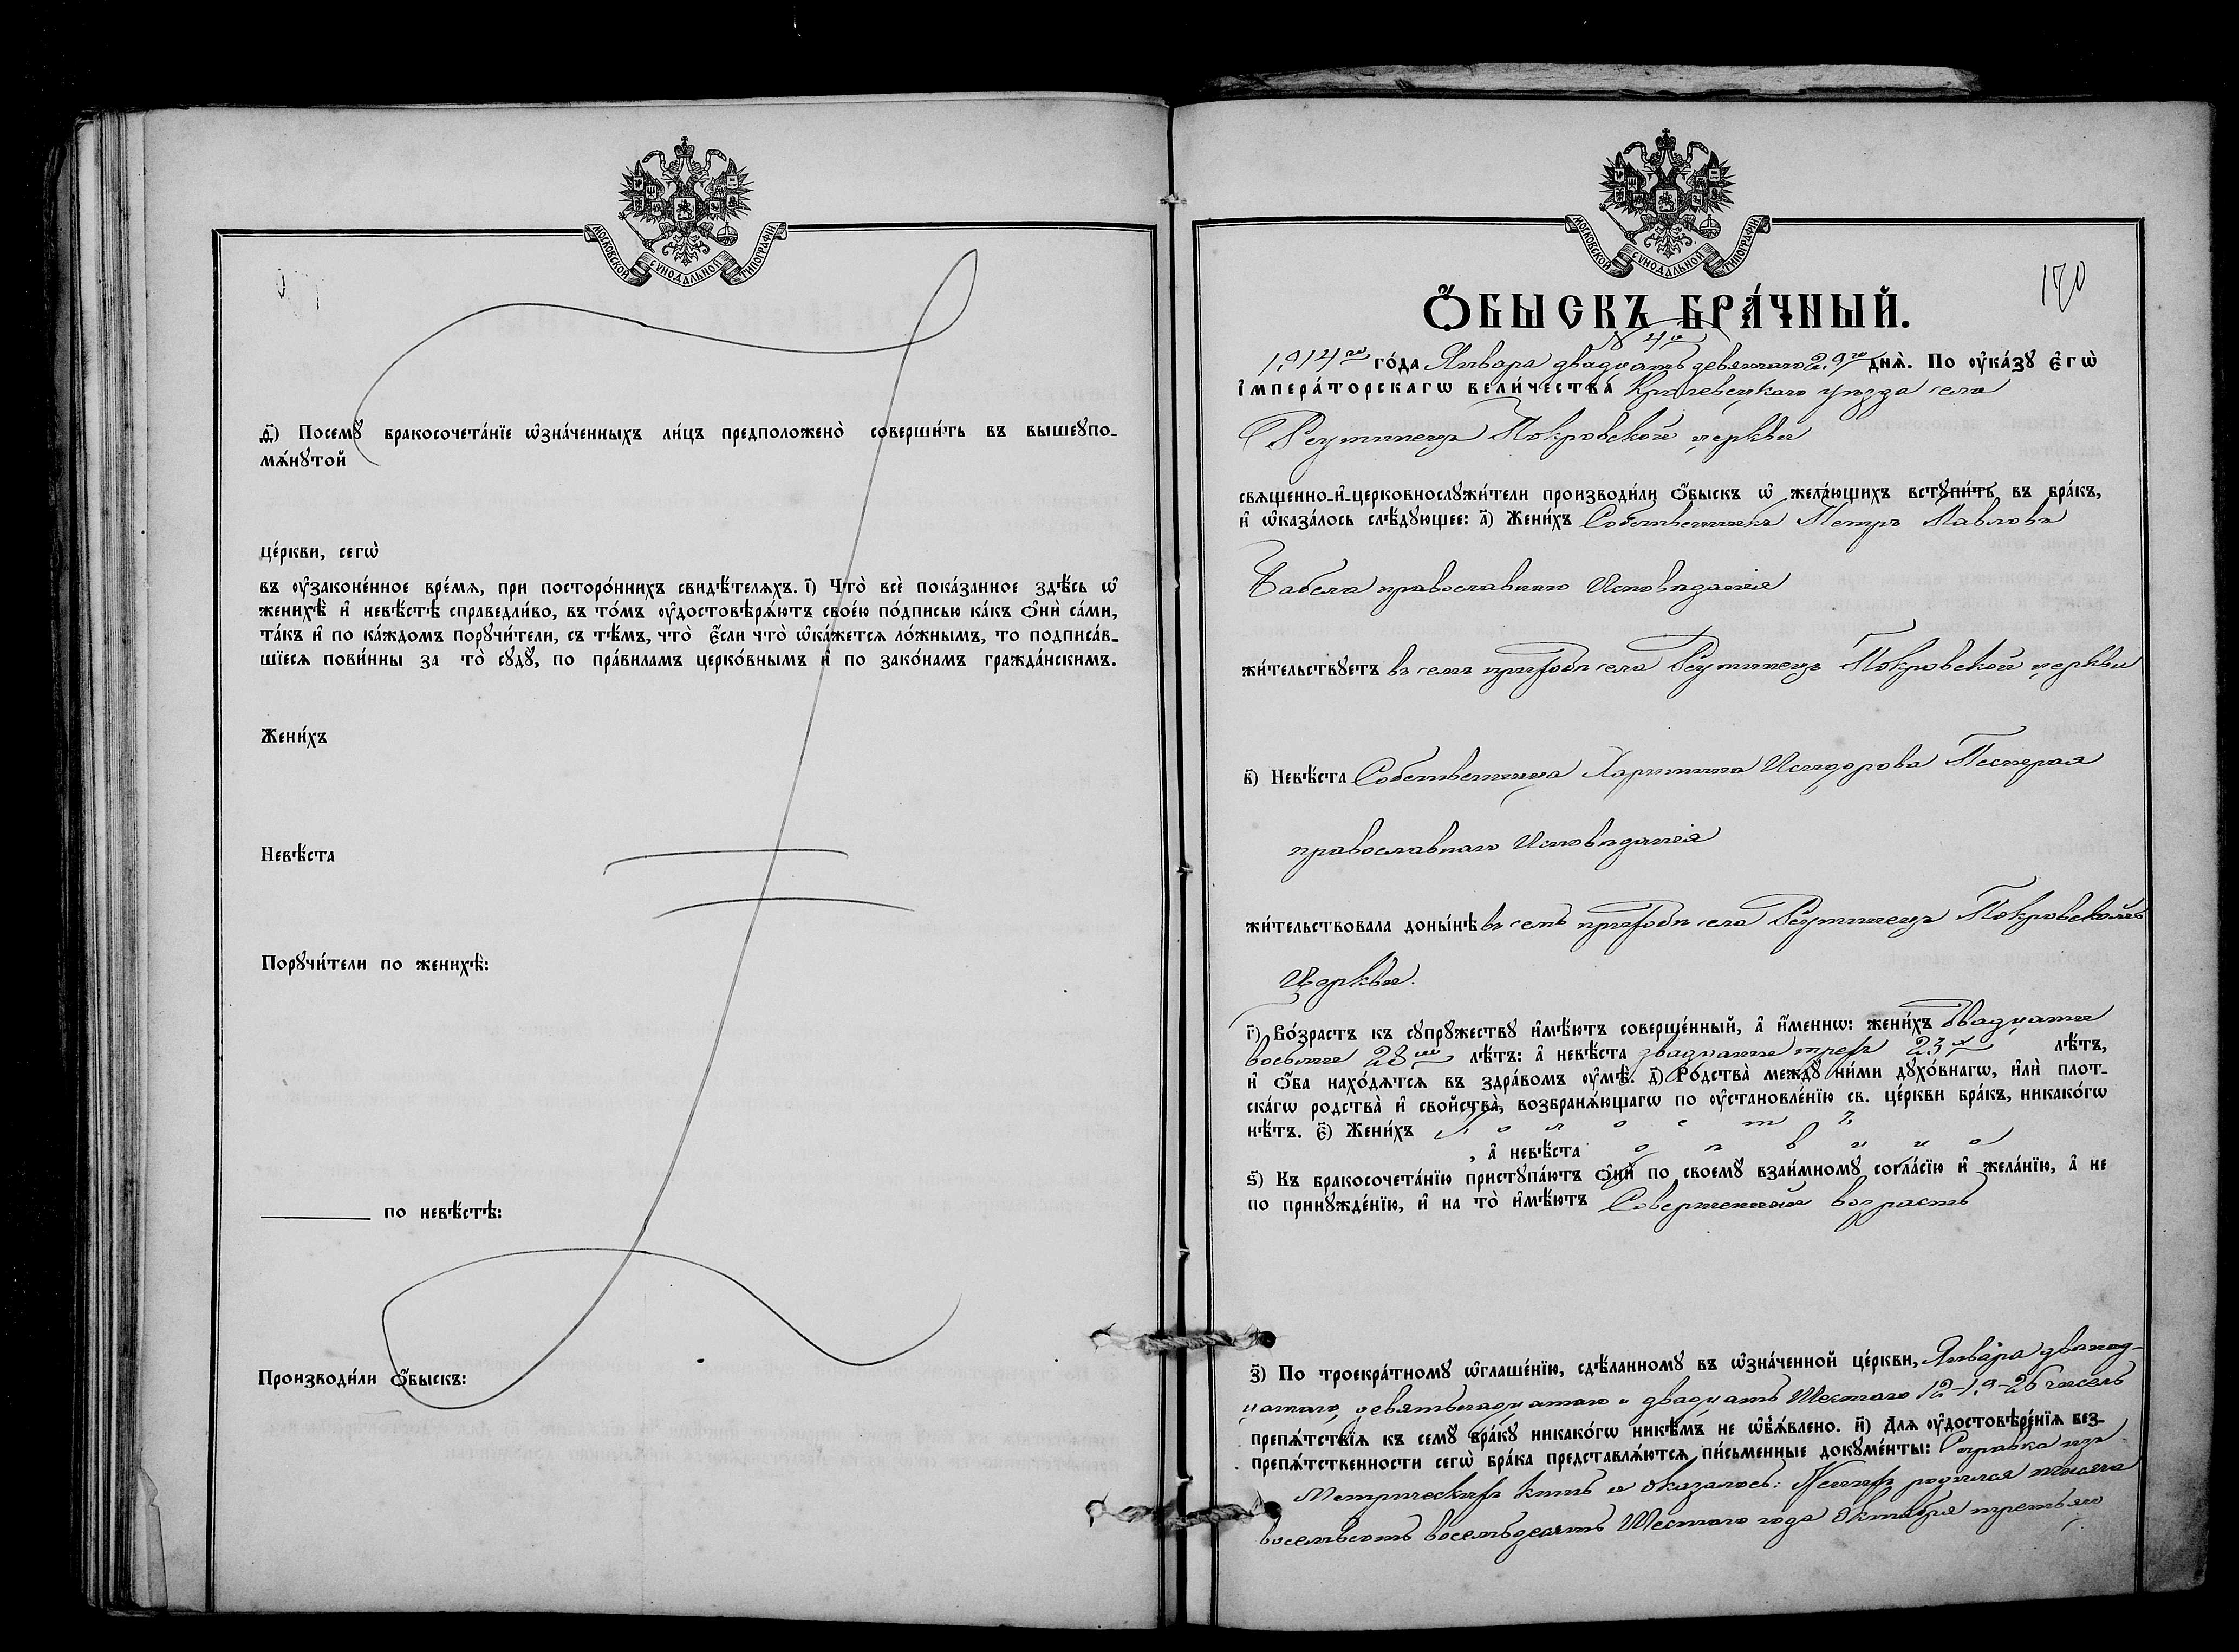 МОСКОВСКОЙ СѴНОДАЛЬНОЙ ТИПОГРАФІИ
ѳ҃) Посемꙋ̀ бракосочета́нїе ѡ҆зна́ченныхъ ли́цъ предположено̀ соверши́ть въ вышеꙋпо-
мѧ́нꙋтой
це́ркви, сегѡ̀
въ ᲂу҆законе́нное вре́мѧ, при посторо́ннихъ свидѣ́телѧхъ. і҃) Что̀ всѐ пока́занное здѣ́сь ѡ҆
женихѣ̀ и҆ невѣ́стѣ справедли́во, въ то́мъ ᲂу҆достовѣрѧ́ютъ свое́ю по́дписью ка́къ ѻ҆нѝ са́ми,
та́къ и҆ по ка́ждомъ порꙋчи́тели, съ тѣ́мъ, что̀ є҆́сли что̀ ѡ҆ка́жетсѧ ло́жнымъ, то подписа́в-
шїесѧ пови́нны за то̀ сꙋдꙋ̀, по пра́виламъ церко́внымъ и҆ по зако́намъ гражда́нскимъ.
Жени́хъ
Невѣ́ста
Порꙋчи́тели по женихѣ̀:
по невѣ́стѣ:
Производи́ли ѻ҆́быскъ:
МОСКОВСКОЙ СѴНОДАЛЬНОЙ ТИПОГРАФІИ
170
Ѻ҆́БЫСКЪ БРА́ЧНЫЙ.
№ 4й
1914го го́да Января двадцать девятаго 29го днѧ̀. По ᲂу҆ка́зꙋ є҆гѡ̀
і҆мпера́торскагѡ вели́чества Кролевецкаго уѣзда села
Реутинецъ Покровской церкви
свѧщенно-и҆-церковнослꙋжи́тели производи́ли ѻ҆́быскъ ѡ҆ жела́ющихъ встꙋпи́ть въ бра́къ,
и҆ ѡ҆каза́лось слѣ́дꙋющее: а҃) Жени́хъ Собственникъ Петръ Павловъ
Бабела православнаго Исповѣданія
жи́тельствꙋетъ въ семъ приходѣ села Реутинецъ Покровской церкви
в҃) Невѣ́ста Собственница Харитина Исидорова
православнаго Исповѣданія
жи́тельствовала доны́нѣ въ семъ приходѣ села Реутинецъ Покровской
Церкви.
г҃) Во́зрастъ къ сꙋпрꙋ́жествꙋ и҆мѣ́ютъ соверше́нный, а҆ и҆́менно: жени́хъ двадцати
восьми 28ми лѣ́тъ: а҆ невѣ́ста двадцати трехъ 23х лѣ́тъ,
и҆ ѻ҆́ба нахо́дѧтсѧ въ здра́вомъ ᲂу҆мѣ̀. д҃) Родства̀ междꙋ̀ ни́ми дꙋхо́внагѡ, и҆лѝ плот-
ска́гѡ родства̀ и҆ свойства̀, возбранѧ́ющагѡ по ᲂу҆становле́нїю св. це́ркви бра́къ, никако́гѡ
нѣ́тъ. є҃) Жени́хъ Холостъ
, а҆ невѣ́ста дѣвица
ѕ҃) Къ бракосочета́нїю пристꙋпа́ютъ ѻ҆нѝ по своемꙋ̀ взаи́мномꙋ согла́сїю и҆ жела́нїю, а҆ не
по принꙋжде́нїю, и҆ на то̀ и҆мѣ́ютъ Совершенный возрастъ
з҃) По троекра́тномꙋ ѡ҆глаше́нїю, сдѣ́ланномꙋ въ ѡ҆зна́ченной це́ркви, Января двѣнад-
цатаго, девятьнадцатаго и двадцать Шестаго 12-19-26 чиселъ
препѧ́тствїѧ къ семꙋ̀ бра́кꙋ никако́гѡ никѣ́мъ не ѡ҆б̾ѧ́влено. и҃) Длѧ ᲂу҆достовѣре́нїѧ без-
препѧ́тственности сегѡ̀ бра́ка представлѧ́ютсѧ пи́сьменные докꙋме́нты: Справка изъ
Метрическихъ книгъ и оказалось: Женихъ родился тысяча
восемьсотъ восемьдесятъ Шестаго года Октября третьяго